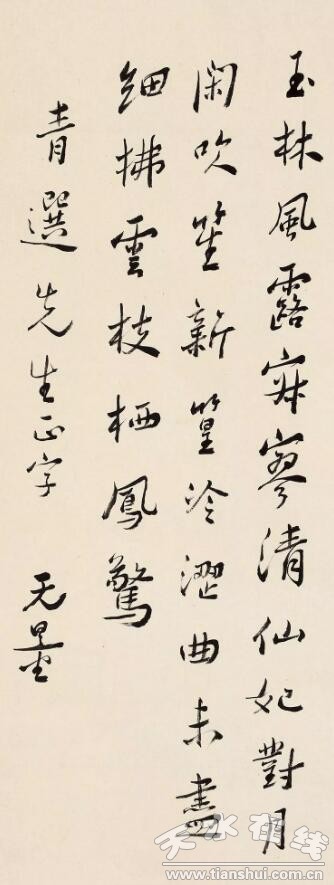 玉林風露寂寥清仙妃對月
閑吹笙新篁冷澀曲未盡
細拂雲枝栖鳳驚
青選先生正字 无量
天水在线
www.tianshui.com.cn